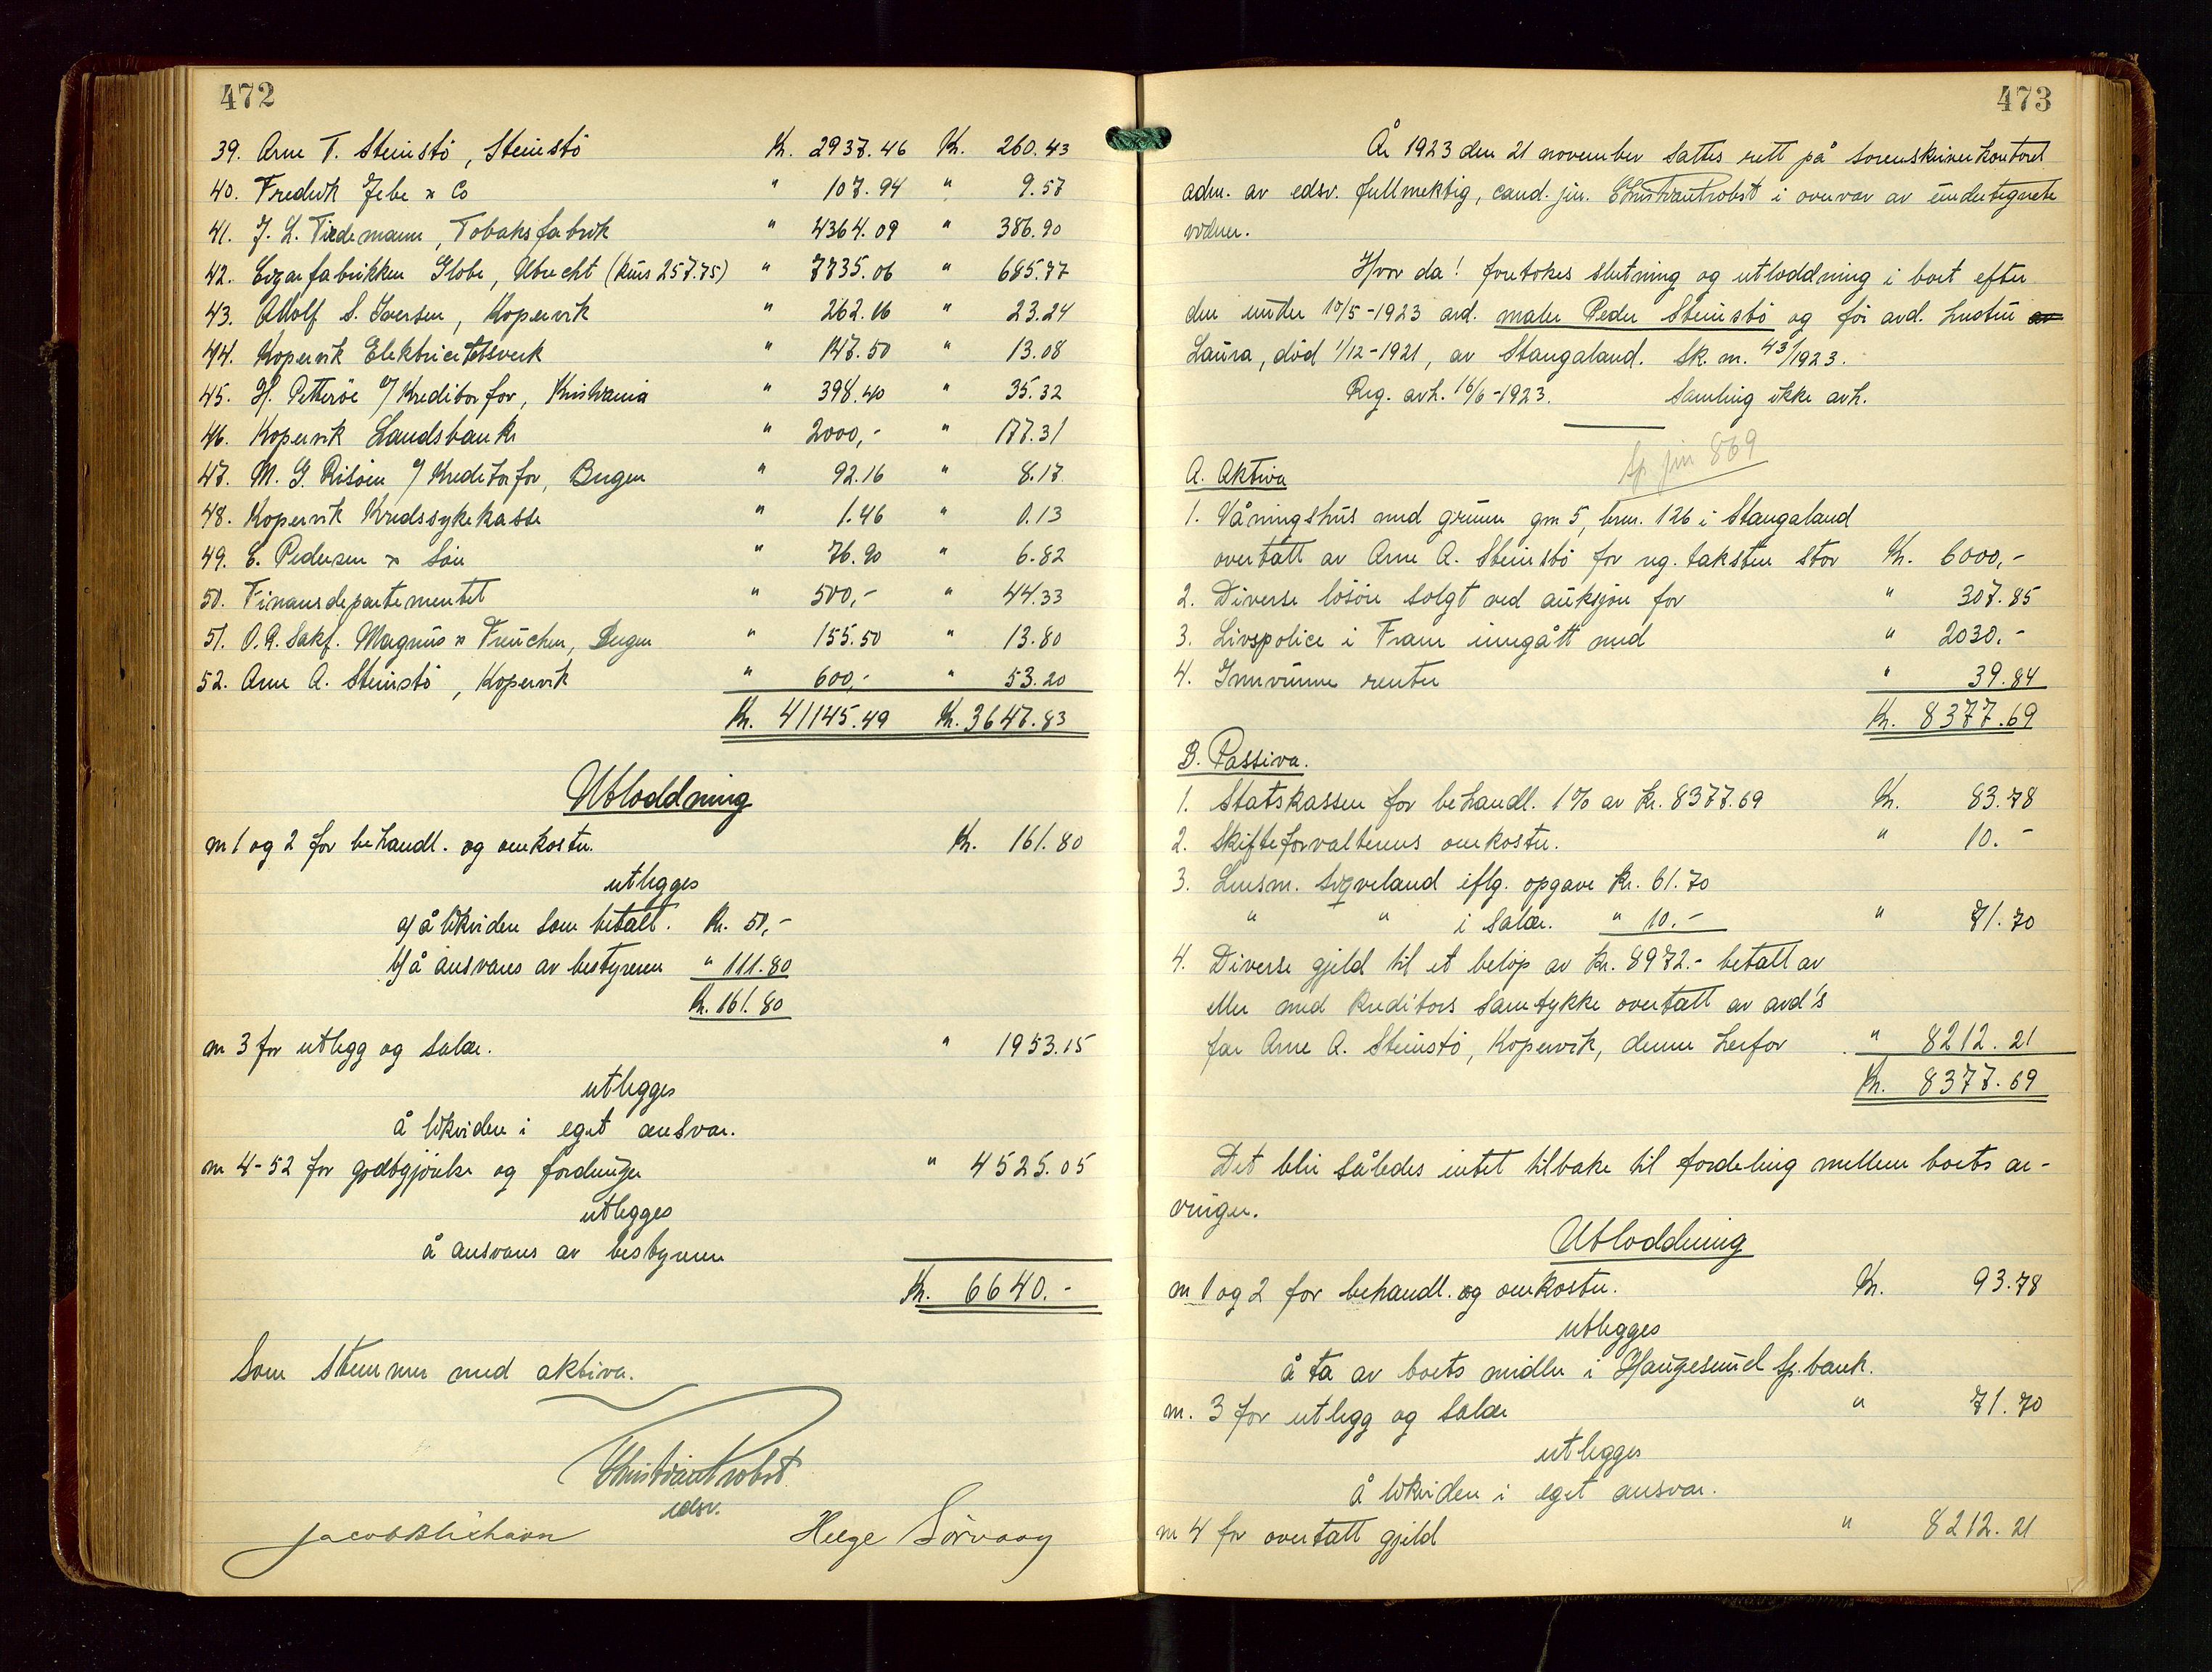 472
39. Arne T. Steinstö, Steinstö Kr. 2937.46 Kr. 260.43
40. Fredrik Jebe & Co " 107.94 " 9.57
41. J. L. Tiedemann, Tobaksfabrik " 4364.09 " 386.90
42. Cigarfabrikken Globe, Utrecht (kurs 257.75) " 7735.06 " 685.77
43. Adolf S. Iversen, Kopervik " 262.16 " 23.24
44. Kopervik Elektricitetsverk " 147.50 " 13.08
45. H. Petteröe v/ Kreditorfor, Kristiania " 398.40 " 35.32
46. Kopervik Landsbank " 2000,- " 177.31
47. M. G. Risöen v/ Kreditorfor, Bergen " 92.16 " 8.17
48. Kopervik Kredssykekasse " 1.46 " 0.13
49. E. Pedersen & Sön " 76.90 " 6.82
50. Finansdepartementet " 500,- " 44.33
51. O.R. Sakf. Magnus & Freuchen, Bergen " 155.50 " 13.80
52. Arne A. Steinstö, Kopervik " 600,- " 53.20
Kr. 41145.49 Kr. 3647.83
Utloddning
nr 1 og 2 for behandl. og omkostn. Kr. 161.80
utlegges
a/ å likviden som betalt. Kr. 50,-
b/ å ansvares av bestyreren " 111.80
Kr. 161.80
nr 3 for utlegg og salær. " 1953.15
utlegges
å likviden i eget ansvar.
nr 4-52 for godtgjörelse og fordringer " 4525.05
utlegges
å ansvares av bestyreren
Kr. 6640.-
Som stemmer med aktiva.
Christian Probst
edsv.
Jacob Blikhavn Helge Sörvaag
473
År 1923 den 21 november sattes rett på sorenskriverkontoret
adm. av edsv. fullmektig, cand. jur. Christian Probst i overvær av undertegnete
vidner.
Hvor da! foretokes slutning og utloddning i boet efter
den under 10/5-1923 avd. maler Peder Steinstö og før avd. hustru av
Laura, död 1/12-1921, av Stangaland. Sk. nr. 43/1923.
Reg. avh. 16/6-1923. Samling ikke avh.
Sp. jnr 869
A. Aktiva
1. Våningshus med grunn gnr 5, brnr. 126 i Stangaland
overtatt av Arne A. Steinstö for reg. taksten stor Kr. 6000,-
2. Diverse lösöre solgt ved auksjon for " 307.85
3. Livspolice i Fram inngått med " 2030.-
4. Innvunne renter " 39.84
Kr. 8377.69
B. Passiva.
1. Statskassen for behandl. 1% av kr. 8377.69 Kr. 83.78
2. Skifteforvalterens omkostn. " 10.-
3. Lensm. Sigveland iflg. opgave kr. 61.70
" " i salær. " 10.- " 71.70
4. Diverse gjeld til et belöp av kr. 8972.- betalt av
eller med kreditors samtykke overtatt av avd's
far Arne A. Steinstö, Kopervik, denne herfor " 8212.21
Kr. 8377.69
Det blir således intet tilbake til fordeling mellem boets ar-
vinger.
Utloddning
nr 1 og 2 for behandl. og omkostn. Kr. 93.78
utlegges
å ta av boets midler i Haugesund Sp.bank.
nr. 3 for utlegg og salær " 71.70
utlegges
å likviden i eget ansvar.
nr 4 for overtatt gjeld " 8212.21